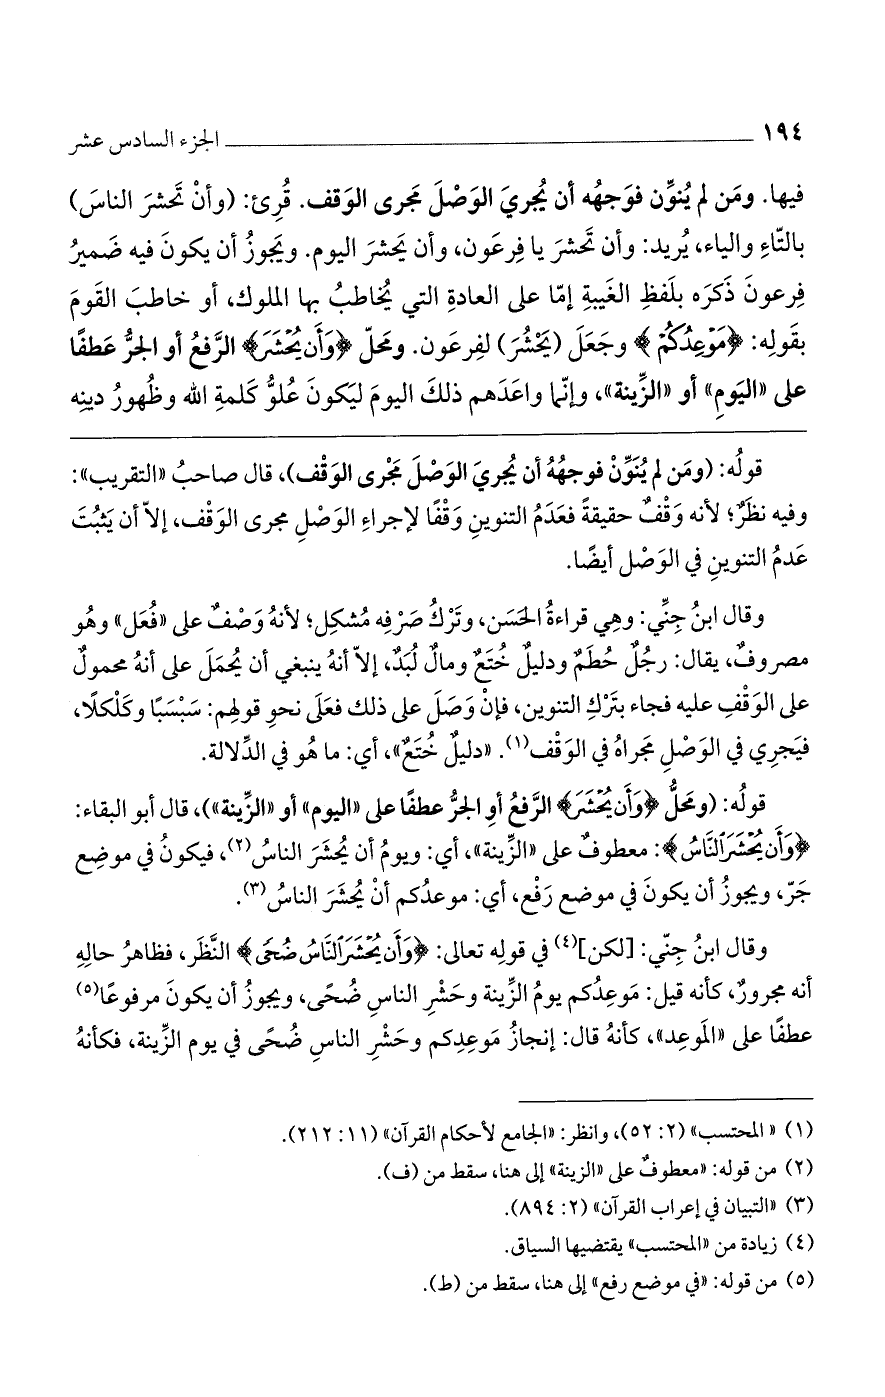 ١٩٤ الجزء السادس عشر
فيها. ومَن لم يُنوِّن فوَجهُه أن يُجريَ الوَصْلَ مَجرى الوَقف. قُرِئ: (وأنْ تَحشرَ الناسَ)
بالتّاءِ والياء، يُريد: وأن تَحشرَ يا فِرعَون، وأن يَحشرَ اليوم. ويَجوزُ أن يكونَ فيه ضَميرُ
فِرعونَ ذَكرَه بلَفظِ الغَيبةِ إمّا على العادةِ التي يُخاطبُ بها الملوك، أو خاطبَ القَومَ
بقَولِه: ﴿مَوْعِدُكُمْ﴾ وجَعَلَ (يَحْشُرَ) لفِرعَون. ومَحلّ ﴿وَأَن يُحْشَرَ﴾ الرَّفعُ أو الجرُّ عَطفًا
على «اليَومِ» أو «الزِّينة»، وإنّما واعَدَهم ذلكَ اليومَ ليَكونَ عُلوُّ كَلمةِ الله وظُهورُ دينِه
قولُه: (ومَن لم يُنَوِّنْ فوجهُهُ أن يُجريَ الوَصْلَ مَجْرى الوَقْف)، قال صاحبُ «التقريب»:
وفيه نظَرٌ؛ لأنه وَقْفٌ حقيقةً فعَدَمُ التنوينِ وَقْفًا لإجراءِ الوَصْلِ مجرى الوَقْف، إلاّ أن يَثبُتَ
عَدمُ التنوينِ في الوَصْل أيضًا.
وقال ابنُ جِنِّي: وهي قراءةُ الحَسَن، وتَرْكُ صَرْفِه مُشكِل؛ لأنهُ وَصْفٌ على «فُعَل» وهُو
مصروفٌ، يقال: رجُلٌ حُطَمٌ ودليلٌ خُتَعٌ ومالٌ لُبَدٌ، إلاّ أنهُ ينبغي أن يُحمَلَ على أنهُ محمولٌ
على الوَقْفِ عليه فجاء بتَرْكِ التنوين، فإنْ وَصَلَ على ذلك فعَلَى نحوِ قولِهم: سَبْسَبَّا وكَلْكَلَّا،
فيَجرِي في الوَصْلِ مَجراهُ في الوَقْف(١). «دليلٌ خُتَعٌ»، أي: ما هُو في الدِّلالة.
قولُه: (ومَحلُّ ﴿وَأَن يُحْشَرَ﴾ الرَّفعُ أوِ الجرُّ عطفًا على «اليوم» أو «الزِّينة»)، قال أبو البقاء:
﴿وَأَن يُحْشَرَ ٱلنَّاسُ﴾: معطوفٌ على «الزِّينة»، أي: ويومُ أن يُحشَرَ الناسُ(٢)، فيكونُ في موضِع
جَرّ، ويجوزُ أن يكونَ في موضع رَفْع، أي: موعدُكم أنْ يُحشَرَ الناسُ(٣).
وقال ابنُ جِنّي: [لكن](٤) في قولِه تعالى: ﴿وَأَن يُحْشَرَ ٱلنَّاسُ ضُحًى﴾ النَّظَر، فظاهرُ حالِهِ
أنه مجرورٌ، كأنه قيل: مَوعِدُكم يومُ الزِّينة وحَشْرِ الناسِ ضُحًى، ويجوزُ أن يكونَ مرفوعًا(٥)
عطفًا على «المَوعِد»، كأنهُ قال: إنجازُ مَوعِدِكم وحَشْرِ الناسِ ضُحًى في يوم الزِّينة، فكأنهُ
(١) «المحتسب» (٢: ٥٢)، وانظر: «الجامع لأحكام القرآن» (١١: ٢١٢).
(٢) من قوله: «معطوفٌ على «الزينة» إلى هنا، سقط من (ف).
(٣) «التبيان في إعراب القرآن» (٢: ٨٩٤).
(٤) زيادة من «المحتسب» يقتضيها السياق.
(٥) من قوله: «في موضع رفع» إلى هنا، سقط من (ط).